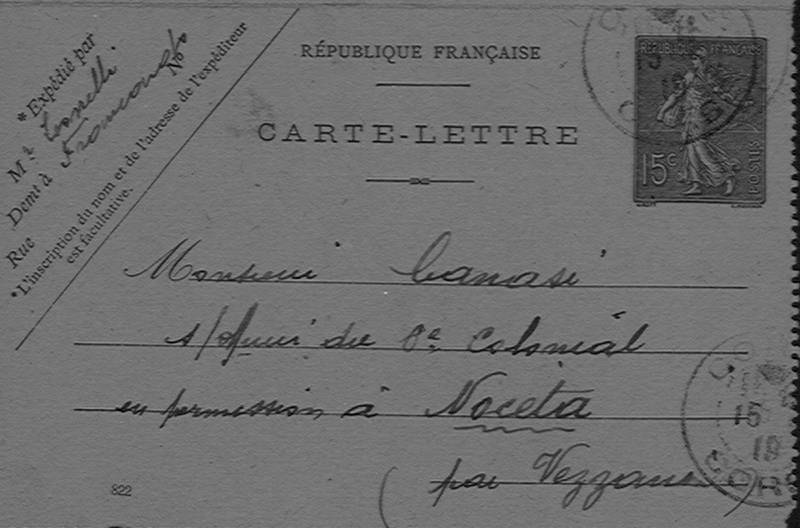 RÉPUBLIQUE FRANÇAISE
CARTE-LETTRE
*Expédié par
Mr
Demt à
Rue No
*L'inscription du nom et de l'adresse de l'expéditeur
est facultative.
RÉPUBLIQUE FRANÇAISE
15c
POSTES
Monsieur Canasi
du 8e Colonial
en permission à Noceta
(par Vezzani)
822
15
18